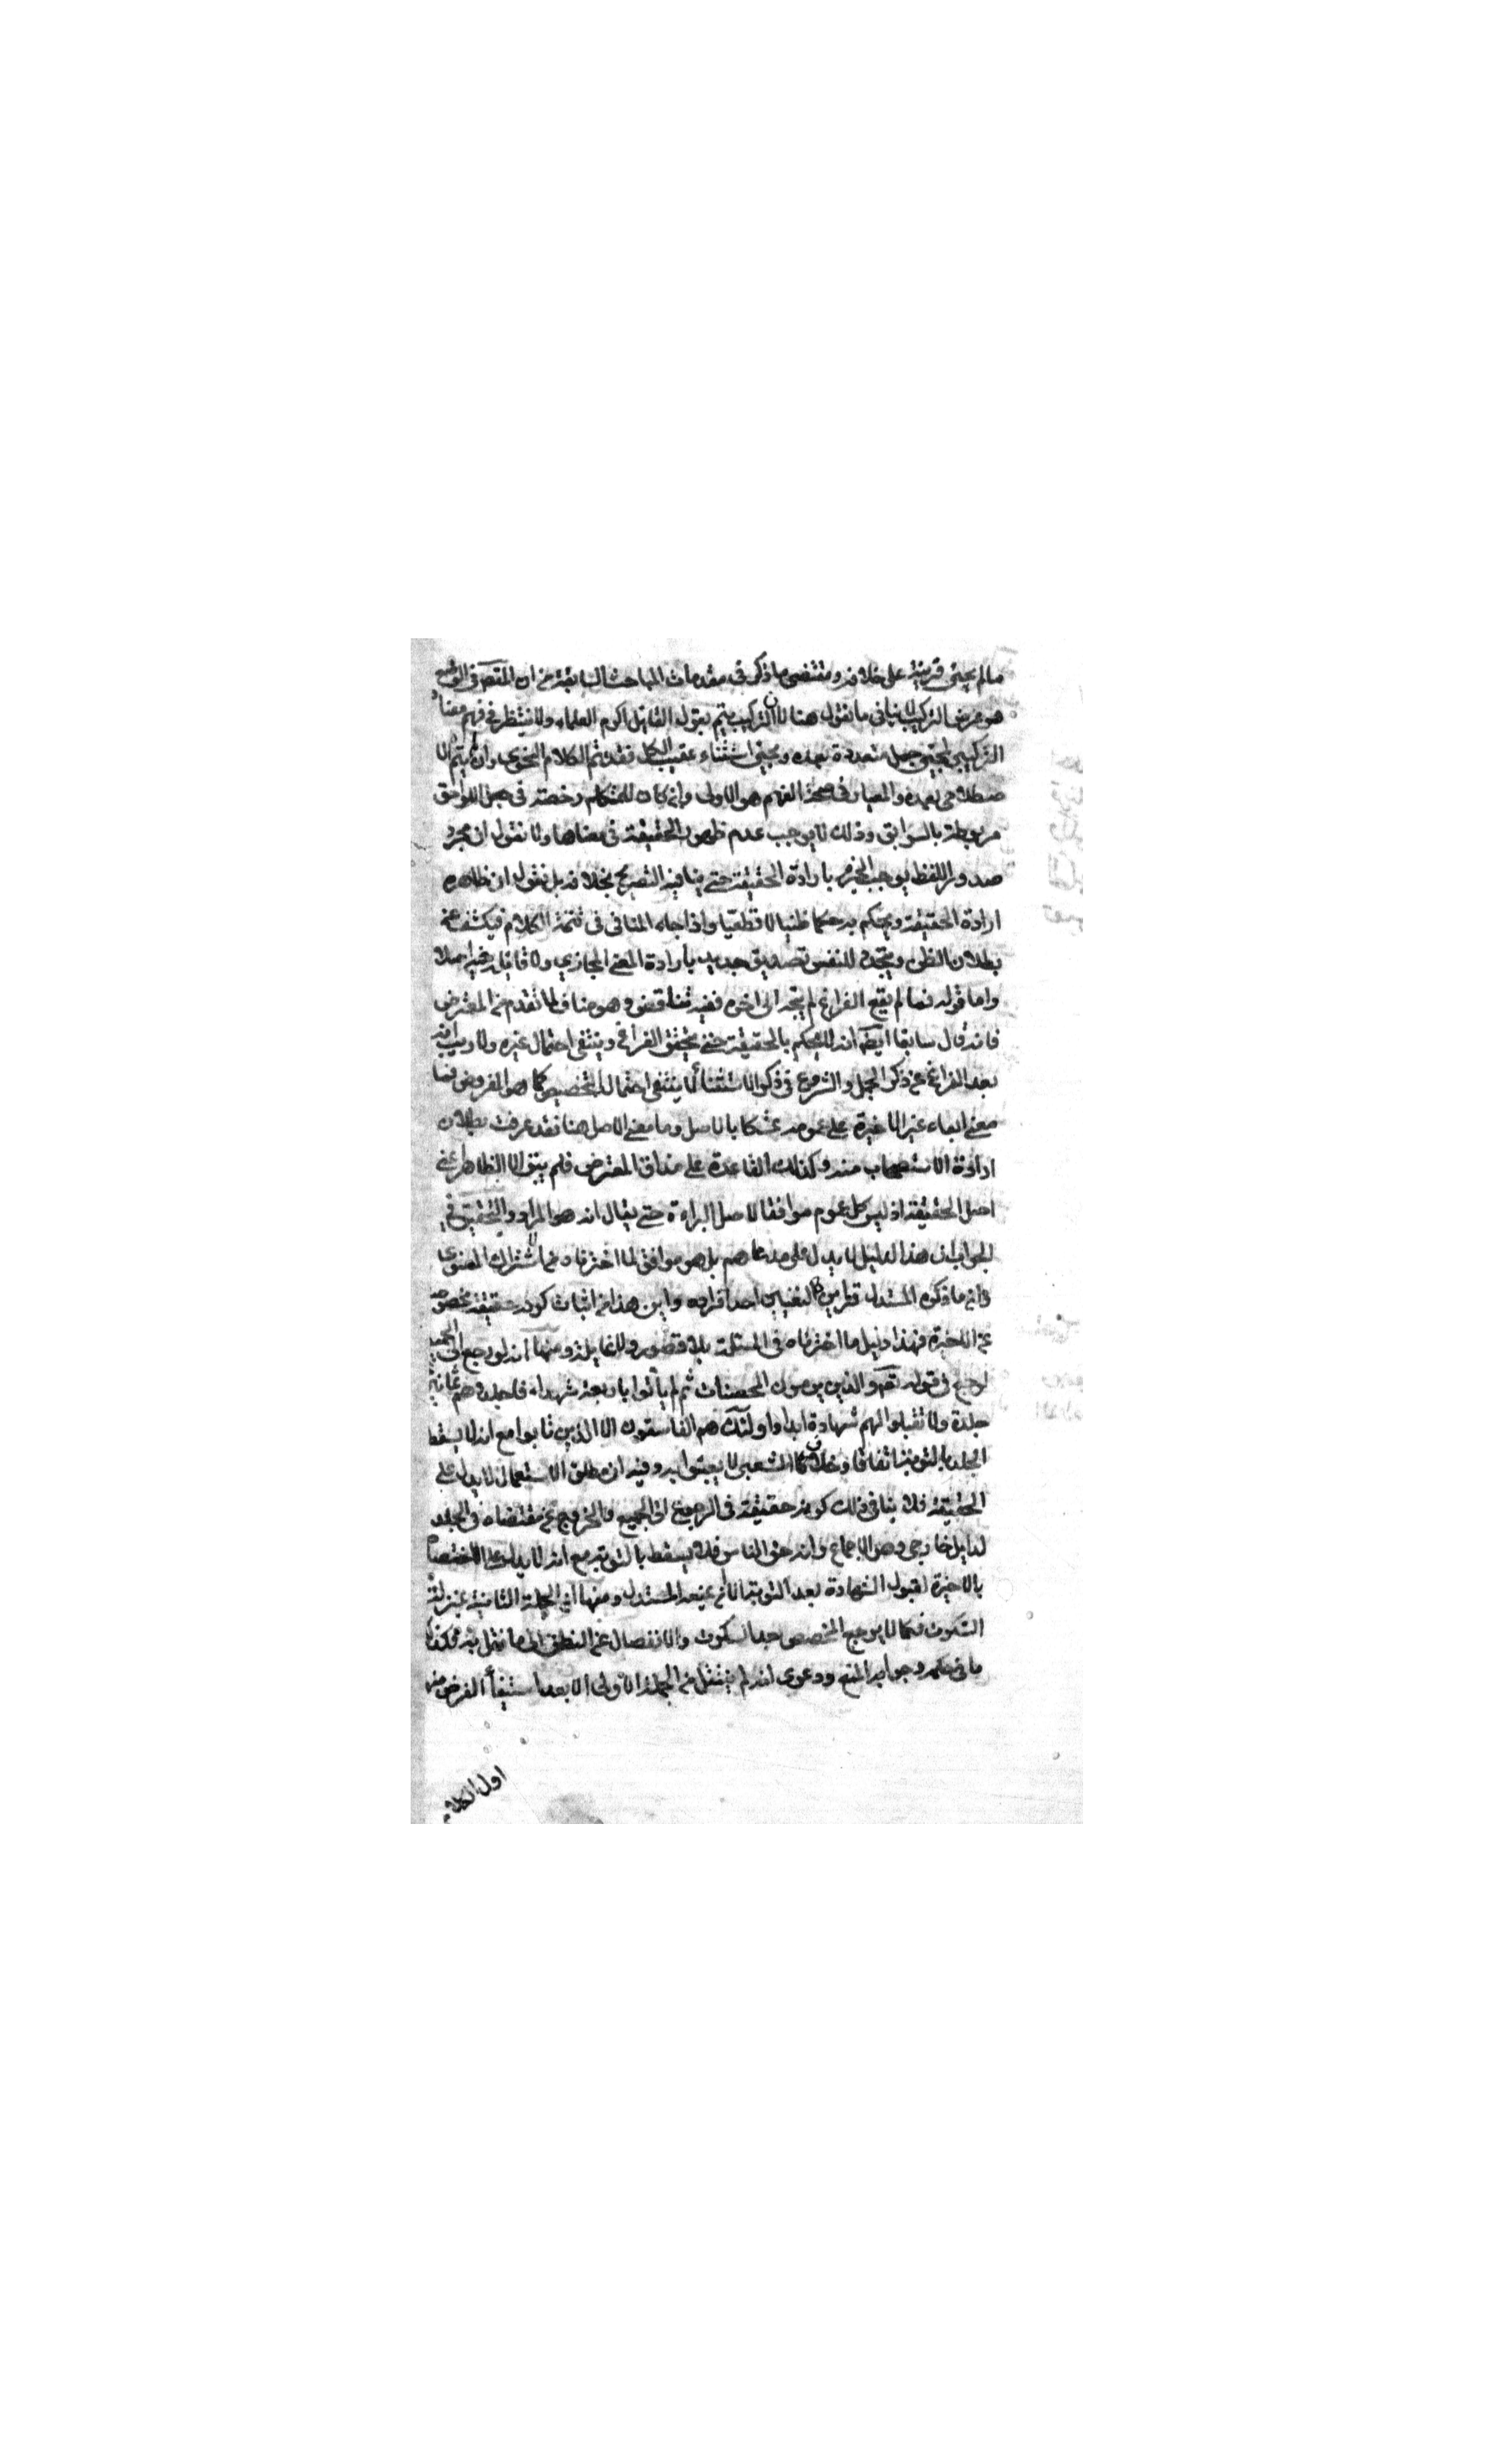 ما لم يجئ قرينة على خلافه ومقتضى ما ذكر فى مقدمات المباحث السابقة من ان المتصور فى الوضع
هو عرض التركيب لا ينافى ما نقول هنا لان التركيب يتم بقول القائل اكرم العلماء ولا ينتظر فى فهم معناه
التركيبى لمجئ جمل متعددة بعده ومجئ استثناء عقيب الكل فقد تم الكلام النحوى وان لم يتم الا
صطلاحى بعده والمعيار فى صحة الفهم هو الاولى وان كان للمتكلم رخصة فى جعل اللواحق
مربوطة بالسوابق وذلك لا يوجب عدم ظهور الحقيقة فى معناها ولا نقول ان مجرد
صدور اللفظ يوجب الجزم بارادة الحقيقة حتى ينافيه التصريح بخلافه بل نقول ان ظاهره
ارادة الحقيقة ويحكم به حكما ظنيا لا قطعيا واذا جاء المنافى فى تتمة الكلام فيكشف عن
بطلان الظن ويتجدد للنفس تصديق جديد بارادة المعنى المجازي ولا قائل فيه اصلا
واما قوله فما لم يقع الفراغ لم يتجه الى اخره ففيه تناقض وهو مناف لما تقدم من المعترض
فانه قال سابقا ايضا انه لا يحكم بالحقيقة حتى يتحقق الفراغ وينتفى احتمال غيره ولا ريب انه
بعد الفراغ عن ذكر الجمل والشروع فى ذكر الاستثناء لا ينتفى احتمال التخصيص كما هو المفروض فما
معنى ابقاء غير الاخيرة على عمومه تمسكا بالاصل وما معنى الاصل هنا فقد عرفت بطلان
ارادة الاستصحاب منه وكذلك القاعدة على مذاق المعترض فلم يبق الا الظاهر اعنى
اصل الحقيقة اذ ليس كل عموم موافقا لاصل البراءة حتى يقال انه هو المراد والتحقيق فى
الجواب ان هذا الدليل لا يدل على مدعاهم بل هو موافق لما اخترناه من الاشتراك المعنوى
وان ما ذكره المستدل قرائن لتعيين احد افراده واين هذا من اثبات كونه حقيقة مخصوصة
عن الاخيرة فهذا دليل ما اخترناه فى المسئلة بلا قصور ولا غايلة ومنها انه لو رجع الى الجميع
لرجع فى قوله تعالى والذين يرمون المحصنات ثم لم يأتوا باربعة شهداء فاجلدوهم ثمانين
جلدة ولا تقبلوا لهم شهادة ابدا واولئك هم الفاسقون الا الذين تابوا مع انه لا يسقط
الجلد بالتوبة اتفاقا وخلاف الشعبى لا يعبئوا به وفيه ان مطلق الاستعمال لا يدل على
الحقيقة فلا ينافى ذلك كونه حقيقة فى الرجوع الى الجميع والخروج عن مقتضاه فى الجلد
لدليل خارجى وهو الاجماع وانه حق الناس فلا يسقط بالتوبة مع انه لا يدل على الاختصاص
بالاخيرة لقبول الشهادة بعد التوبة الا ان يمنعه المستدل ومنها ان الجملة الثانية بمنزلة
السكوت فكما لا يرجع المخصص بعد السكوت والانفصال عن النطق الى ما نقل به فكذا
ما فى حكمه وجوابه المنع ودعوى انه لم ينتقل من الجملة الاولى الا بعد استيفاء الغرض منها
اول الكلام